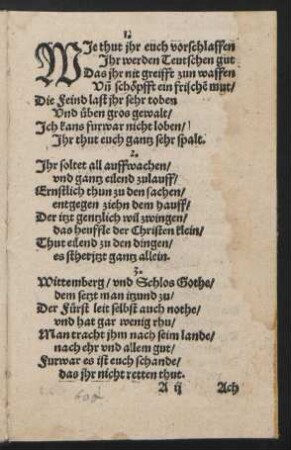 1.
WJe thut jhr euch vorschlaffen
Jhr werden Teutschen gut
Das jhr nit greifft zun waffen
Vñ schöpfft ein frischẽ mut/
Die Feind last jhr sehr toben
Vnd üben gros gewalt/
Jch kans furwar nicht loben/
Jhr thut euch gantz sehr spalt.
2.
Jhr soltet all auffwachen/
vnd gantz eilend zulauff/
Ernstlich thun zu den sachen/
entgegen ziehn dem hauff/
Der itzt gentzlich wil zwingen/
das heuffle der Christen klein/
Thut eilend zu den dingen/
es sthet jtzt gantz allein.
3.
Wittemberg/ vnd Schlos Gothe/
dem setzt man itzund zu/
Der Fürst leit selbst auch nothe/
vnd hat gar wenig rhu/
Man tracht jhm nach seim lande/
nach ehr vnd allem gut/
Furwar es ist euch schande/
das jhr nicht retten thut.
A ij Ach